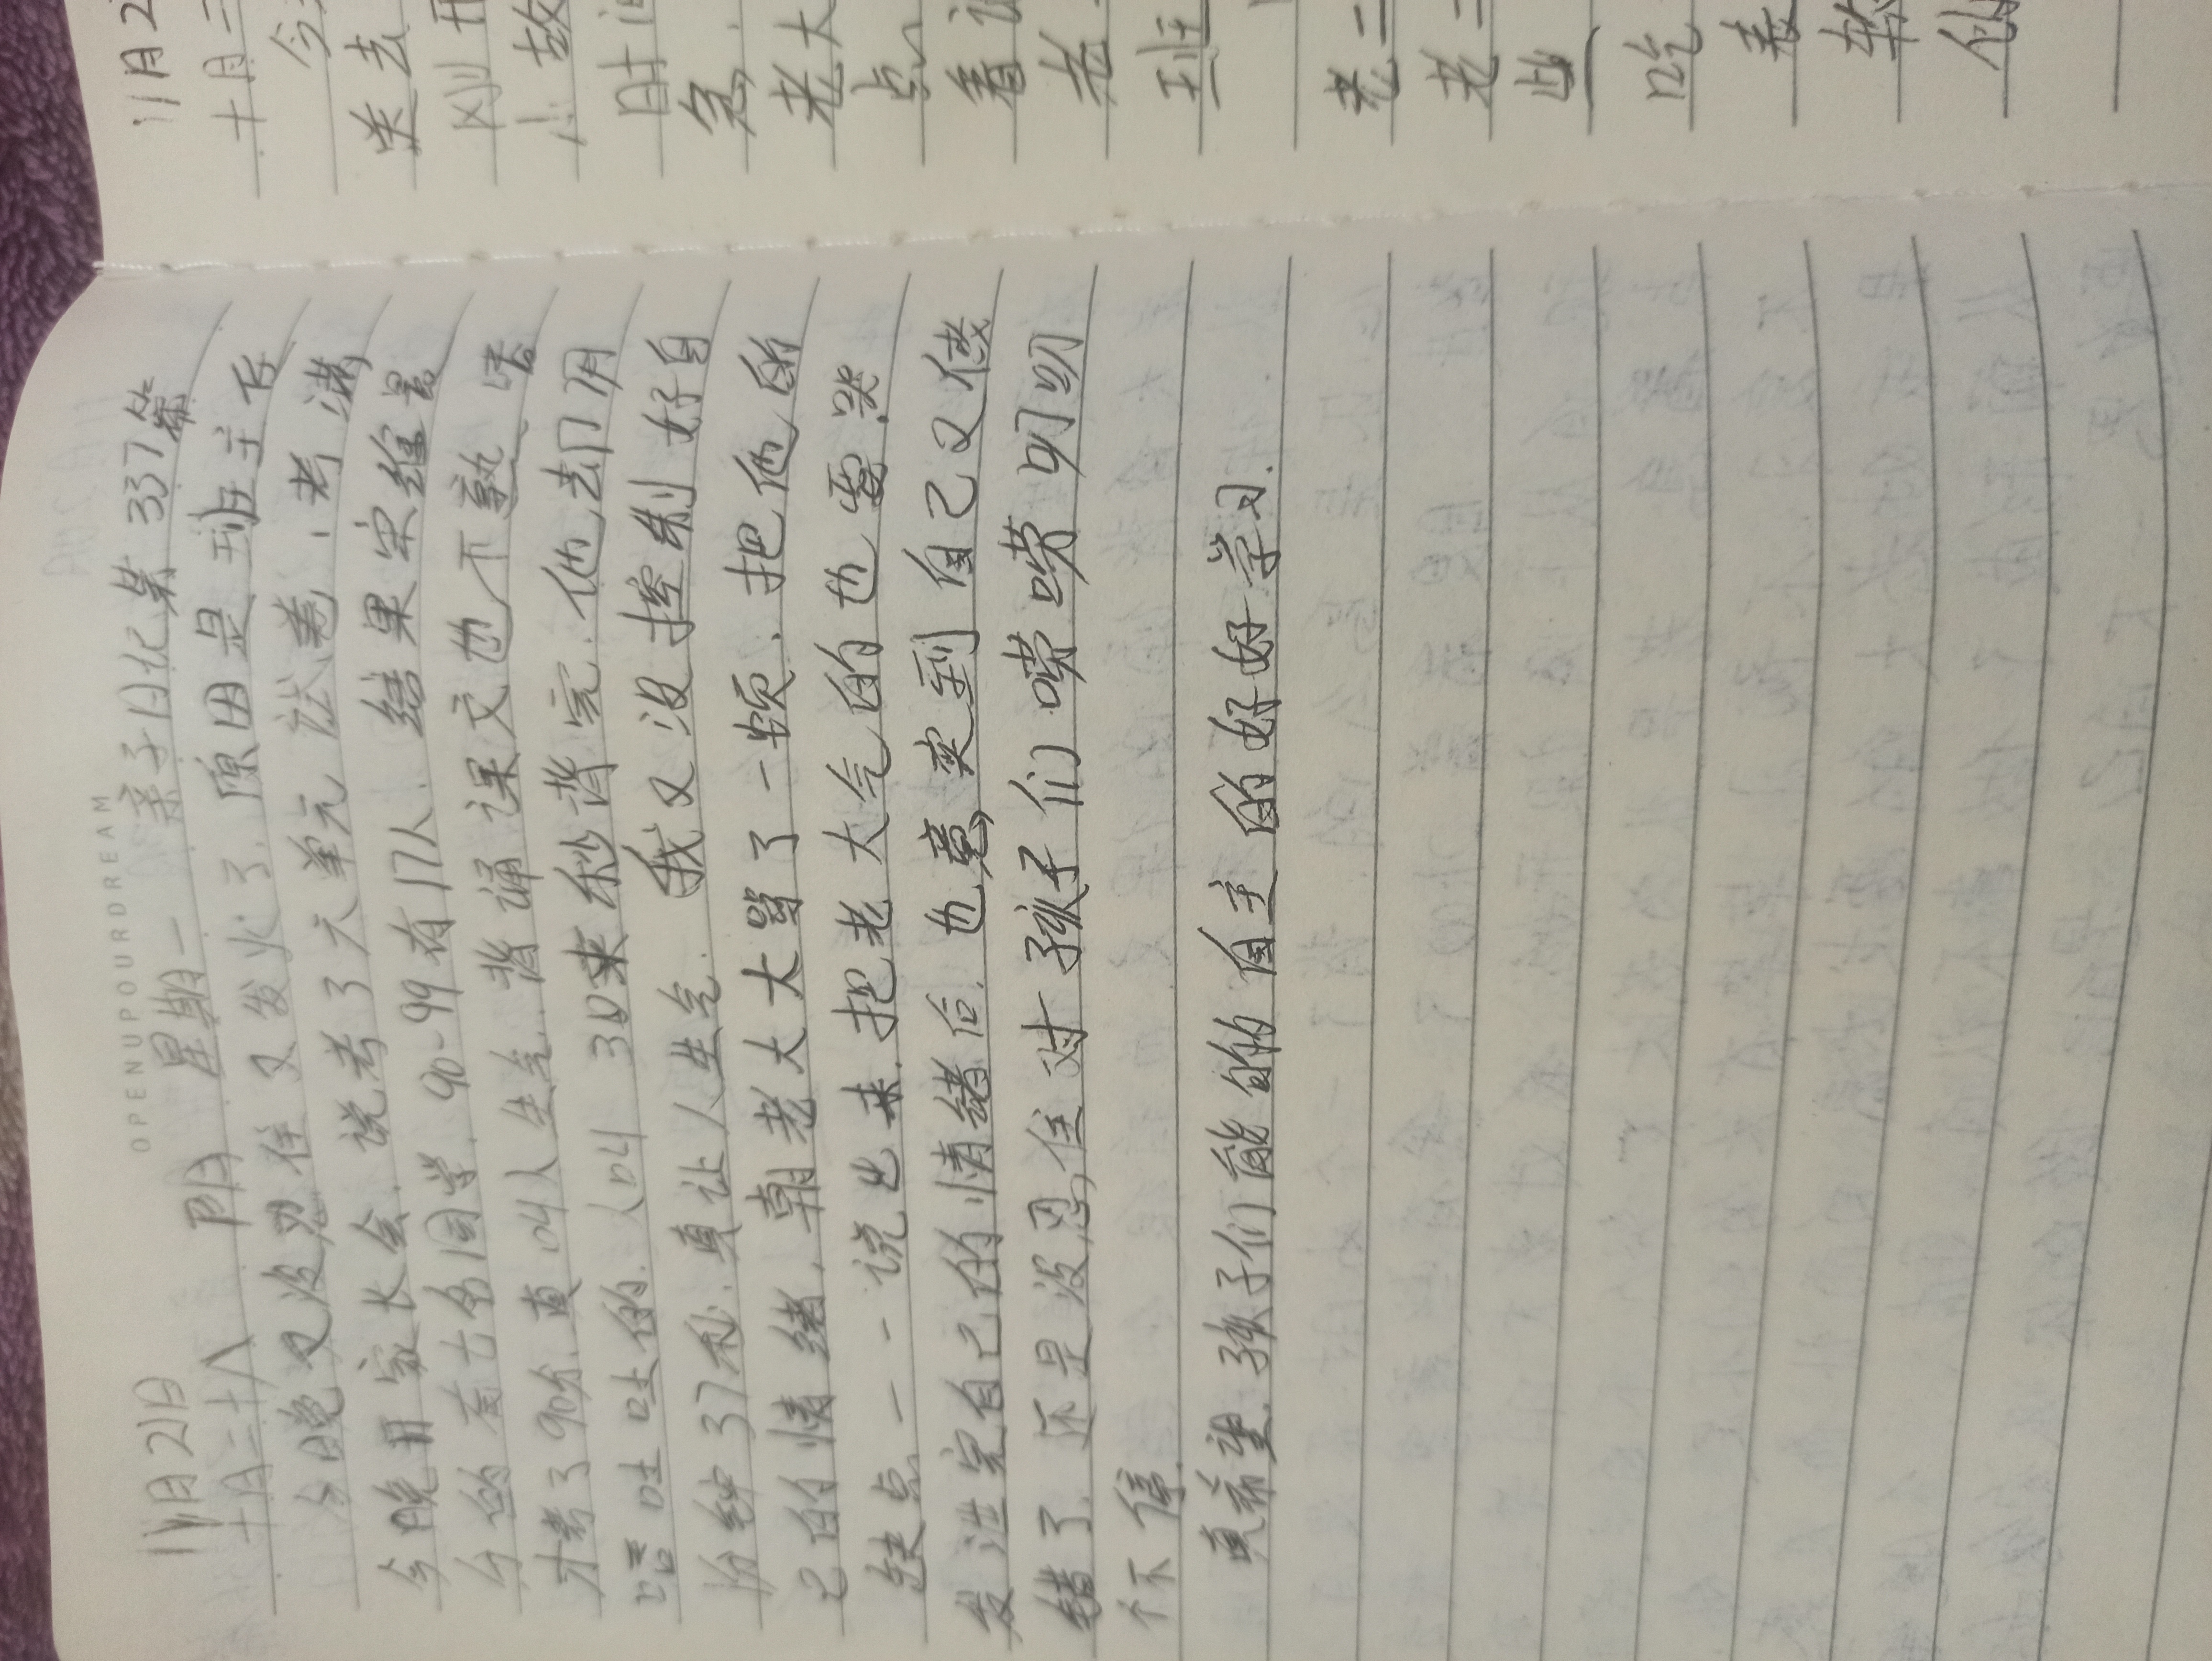 OPENUPOURDREAM
11月21日 阴 星期一 亲子日记第337篇
十月二十八
今晚又没忍住又发火了,原因是班主任
今晚开家长会,说考了六单元试卷,考满
分的有七名同学,90-99有17人,结果宋绘景
才考了90分,真叫人生气,背诵课文也不熟,嗑
嗑吐吐的,人叫30来秒背完,他去门用
份钟37秒,真让人生气,我又没控制好自
己的情绪,朝老大大骂了一顿,把他所
缺点一一说出来,把老大气的也要哭
发泄完自己的情绪后,也意突到自己又做
错了,还是没忍住对孩子们唠唠叨叨
个不停.
真希望,孩子们能的自主的好好学习.
11月2
十月二
今
送去
刚开
小故
时间
急
老大
点
看
老
班
老二
老二
些
吃
表
软